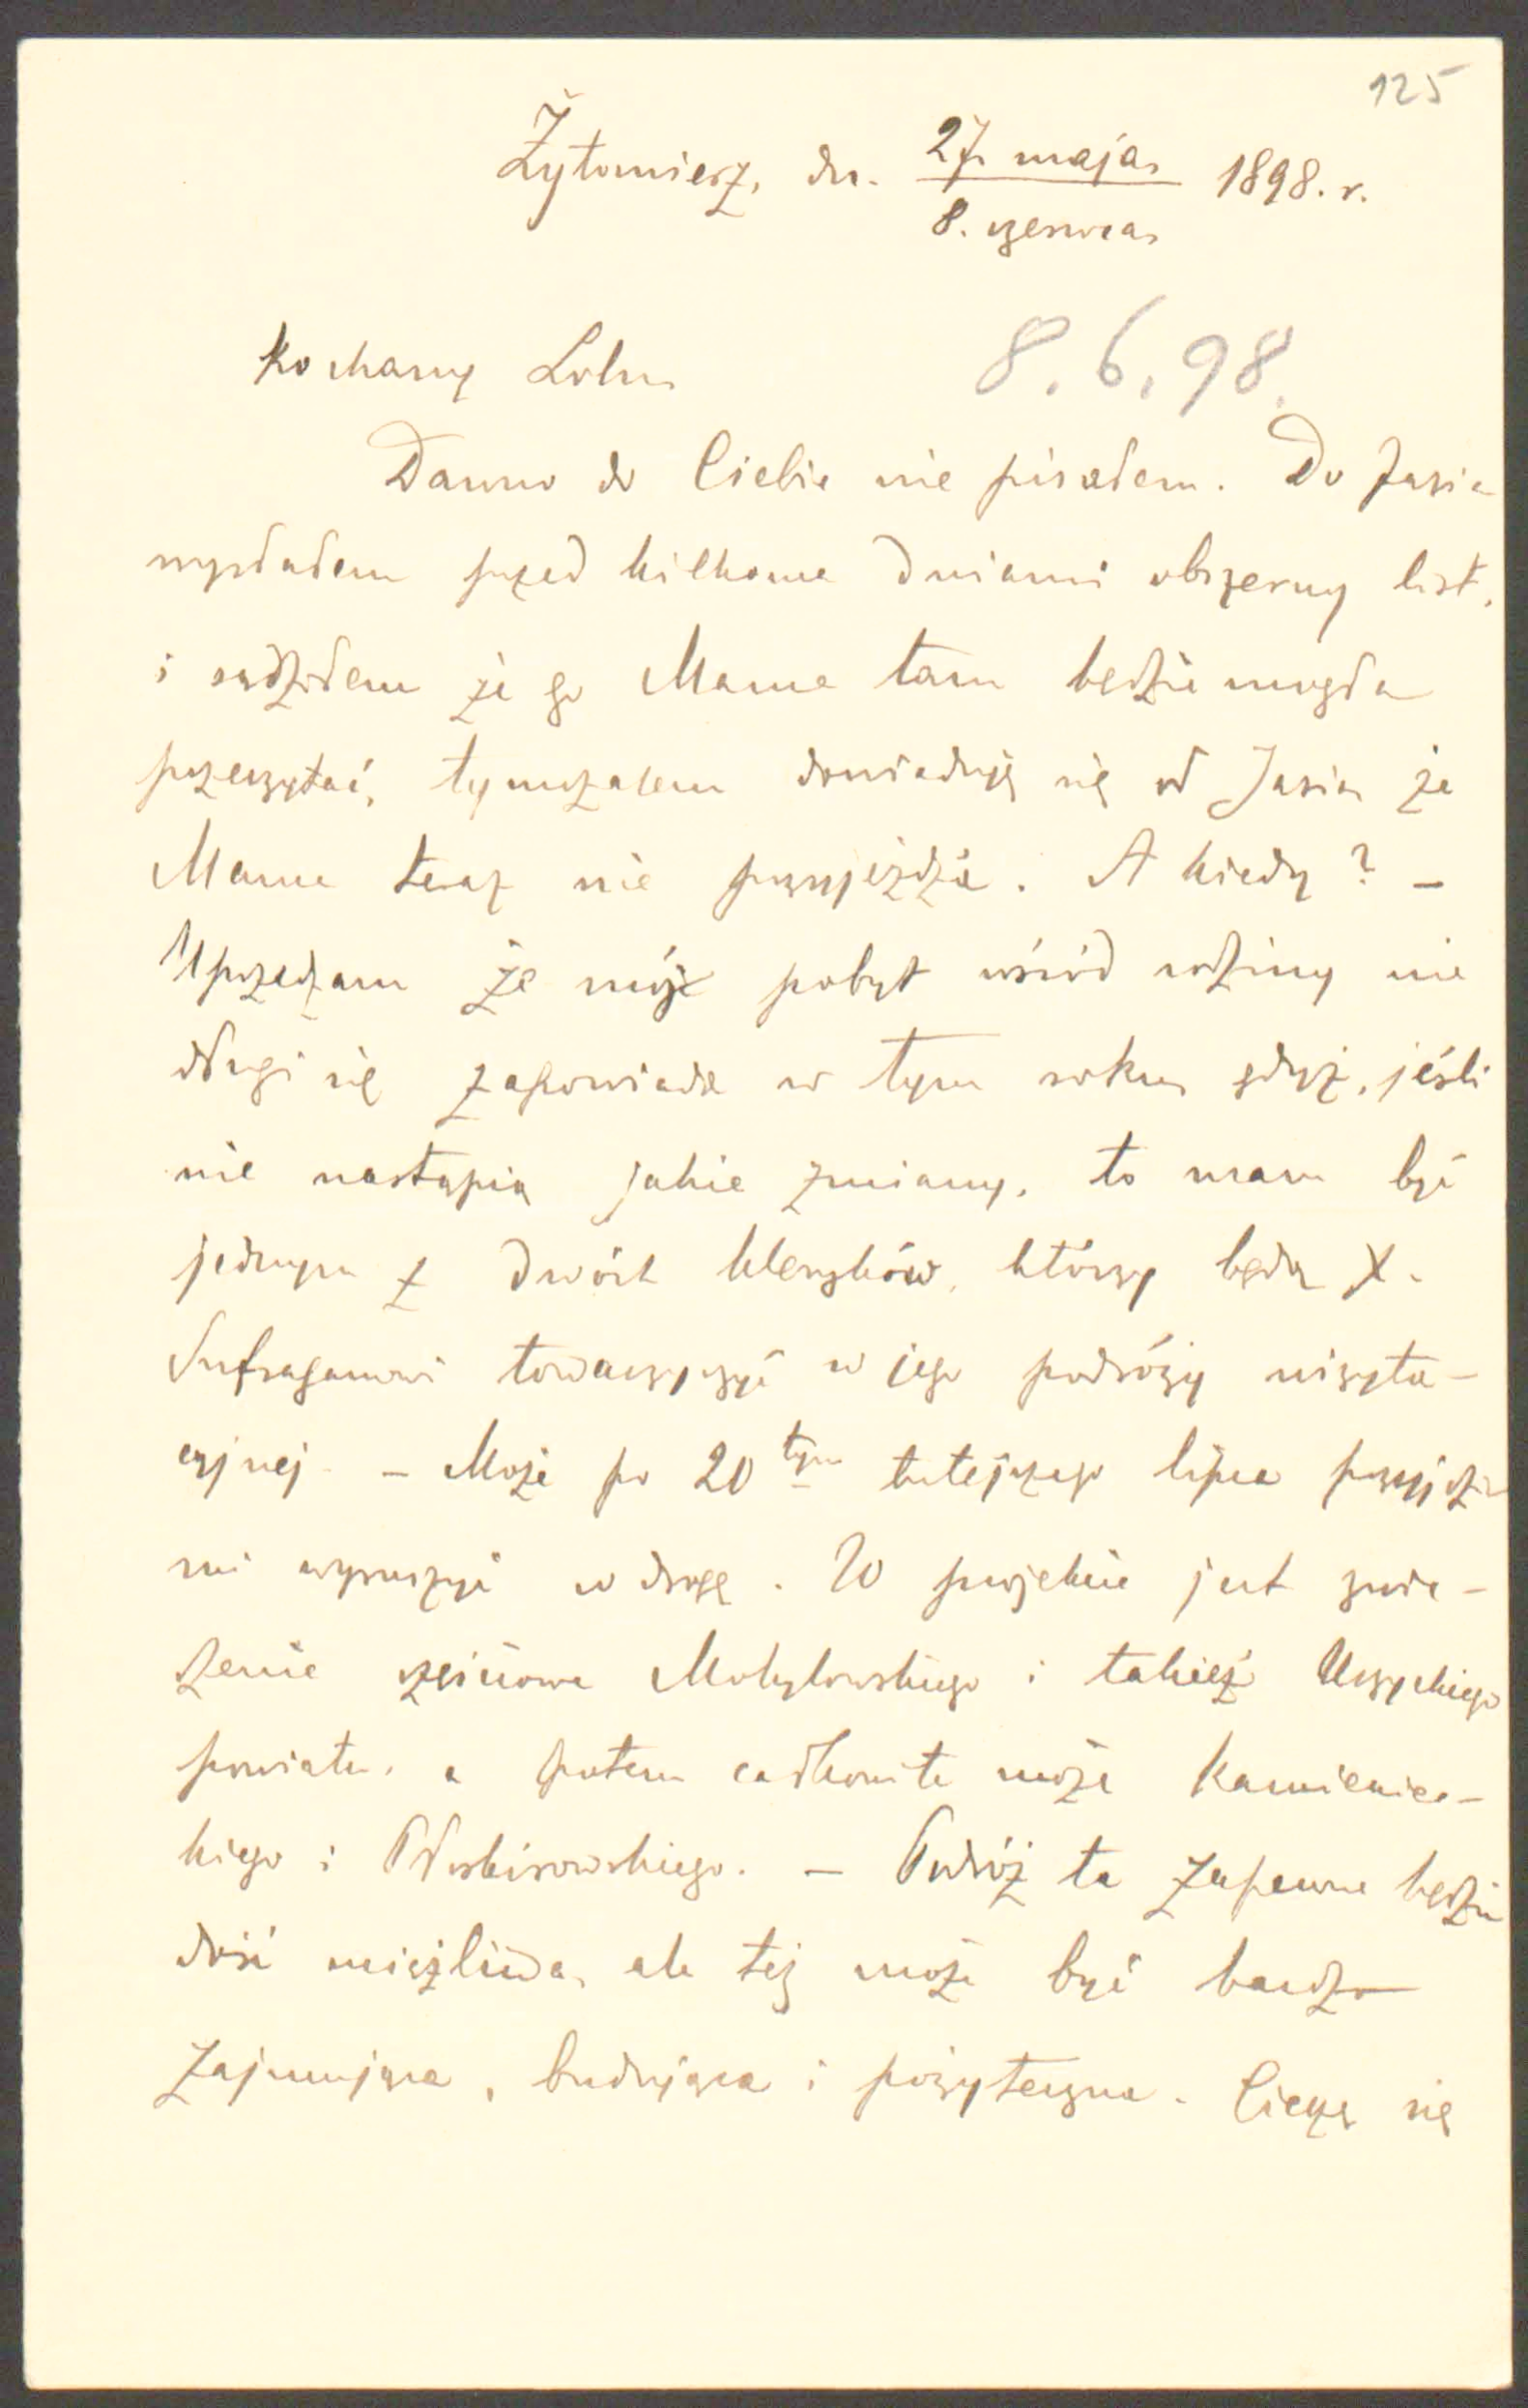 125
Żytomierz, dn. 27. maja 1898. r.
8. czerwca
Kochany Lolu
8.6.98.
Dawno do Ciebie nie pisałem. Do Jasia
wysłałem przed kilkoma dniami obszerny list,
i sądziłem że go Mama tam będzie mogła
przeczytać, tymczasem dowiaduję się od Jasia że
Mama teraz nie przyjeżdża. A kiedy? –
Uprzedzam że mój pobyt wśród rodziny nie
długi się zapowiada w tym roku, gdyż, jeśli
nie nastąpią jakie zmiany, to mam być
jednym z dwóch kleryków, którzy będą X.
Sufraganowi towarzyszyć w jego podróży wizyta-
cyjnej. – Może po 20 tym tutejszego lipca przyjdzie
mi wyruszyć w drogę. W projekcie jest zwie-
dzenie częściowe Mohylowskiego i takież Uszyckiego
powiatu, a potem całkowite może Kamieniec-
kiego i Płoskirowskiego. – Podróż ta zapewne będzie
dość uciążliwa, ale też może być bardzo
zajmująca, budująca i pożyteczna. Cieszę się